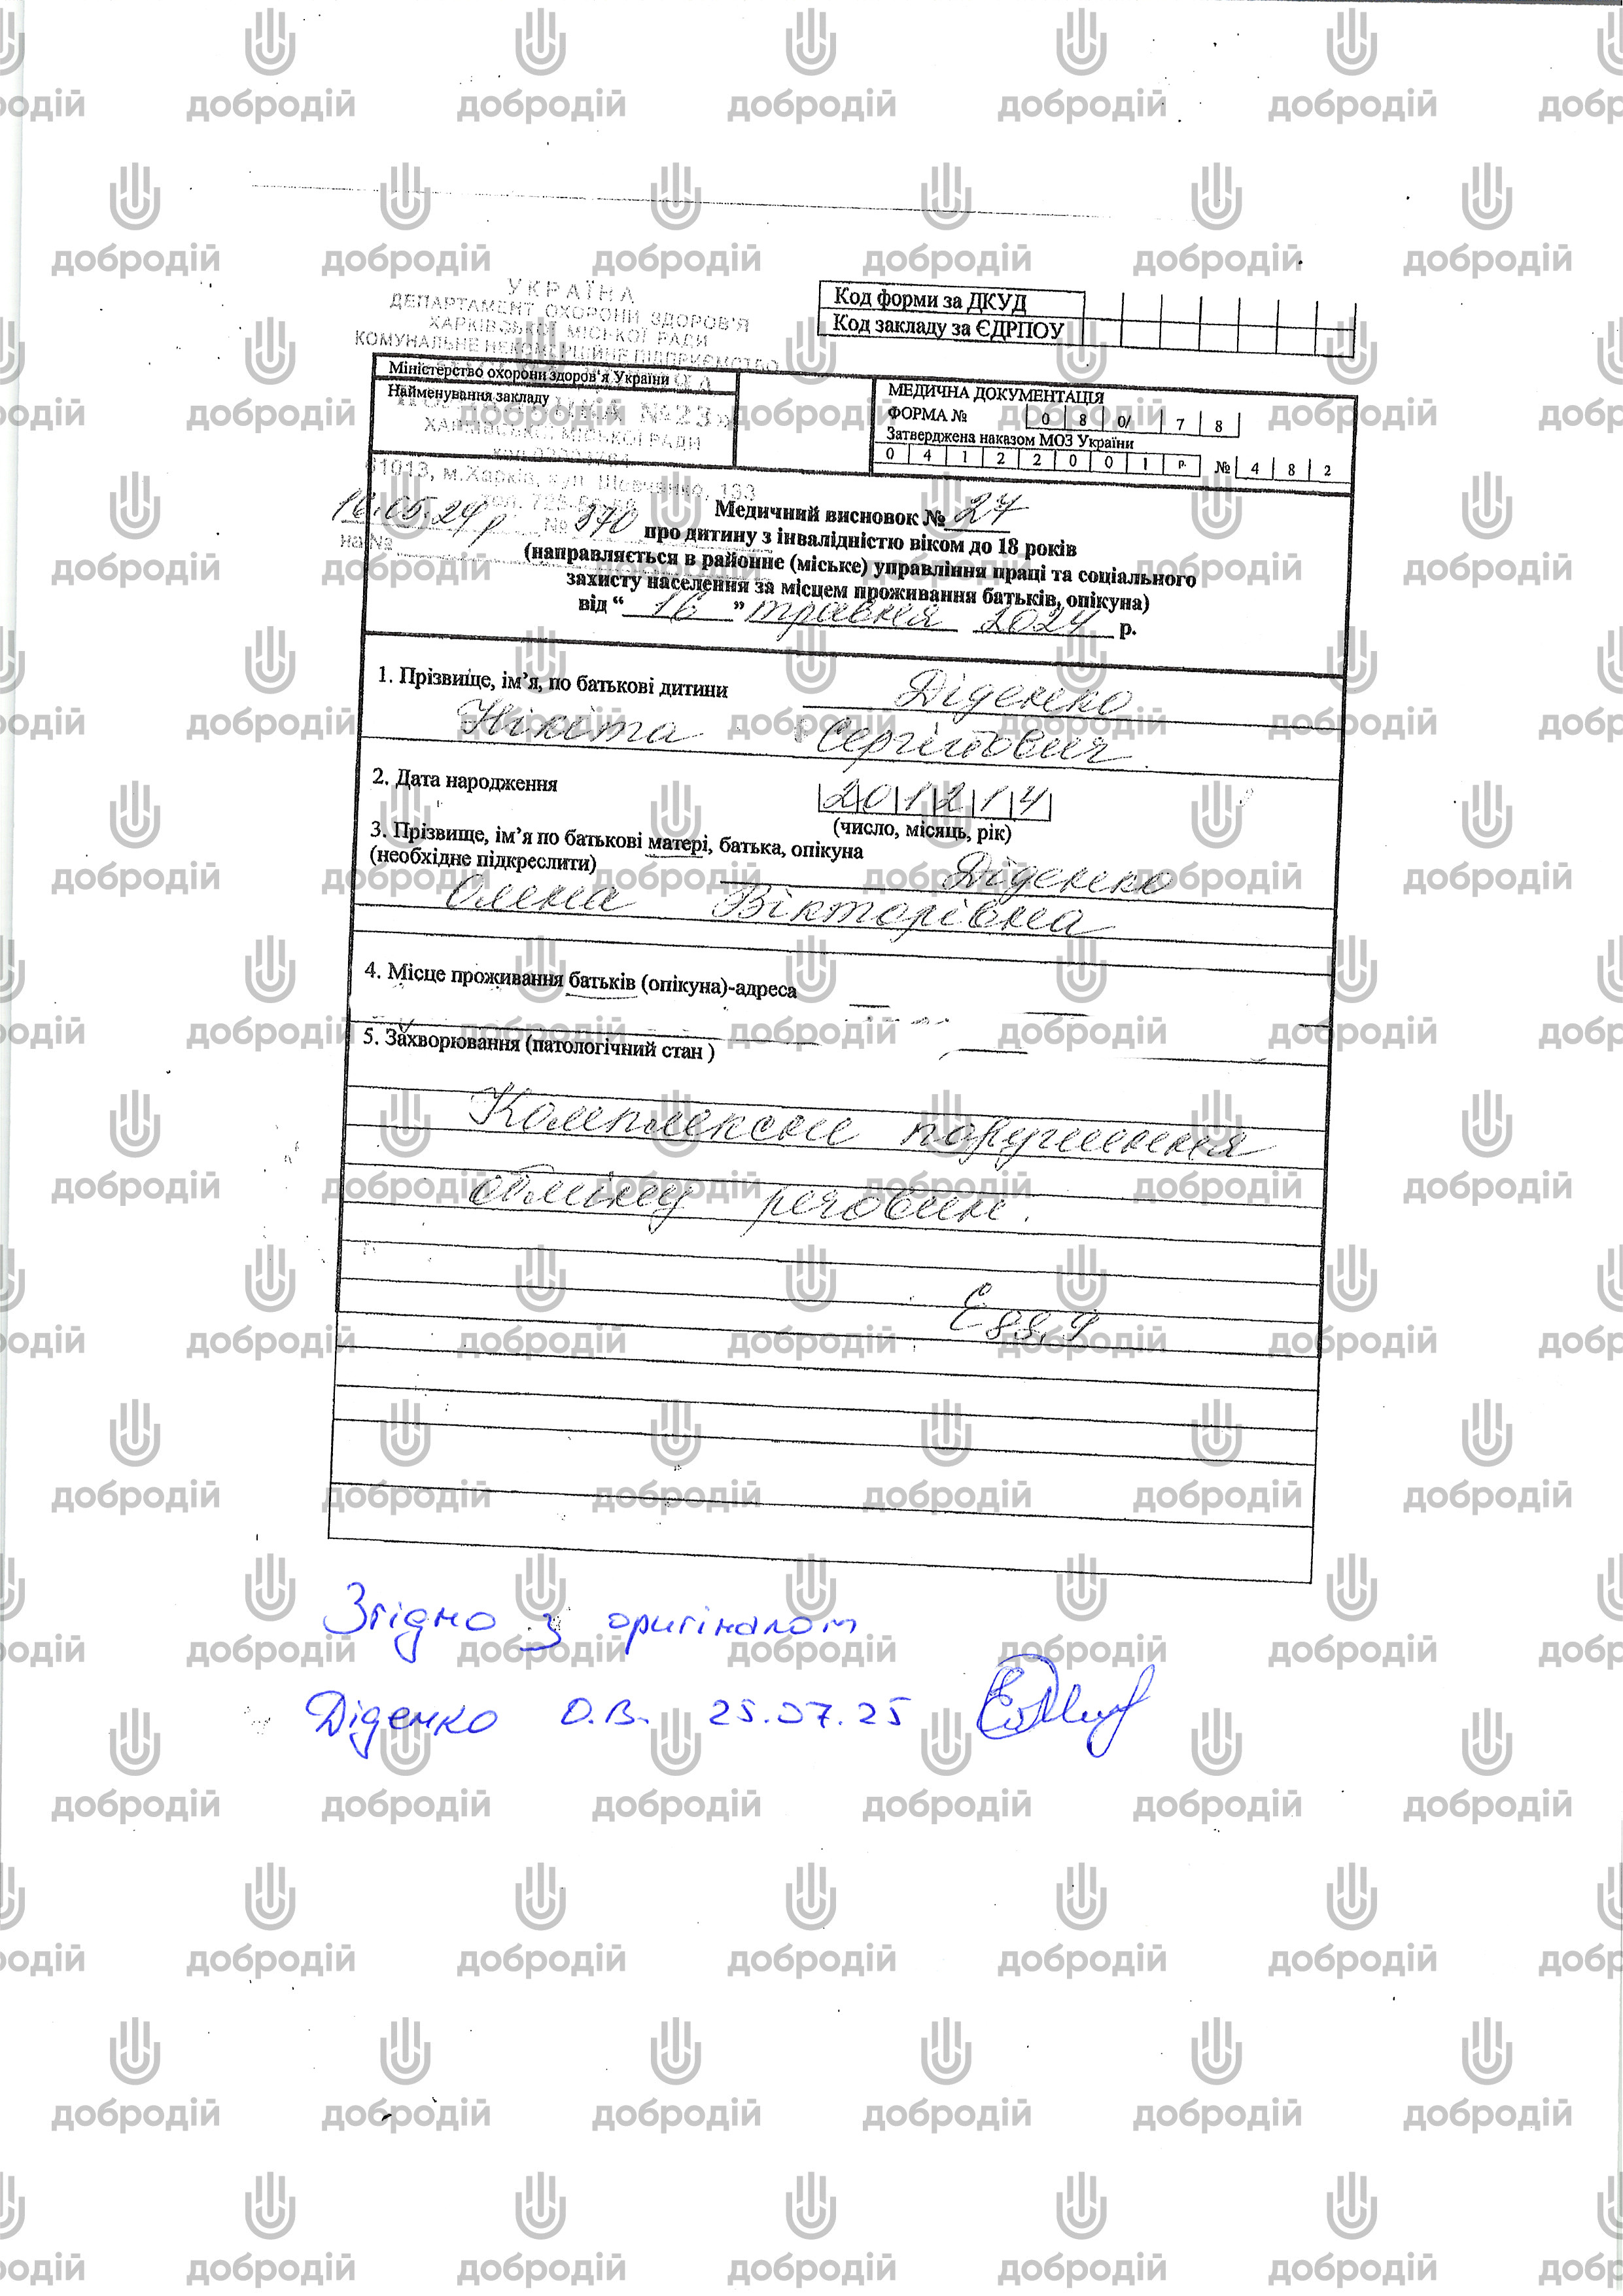 УКРАЇНА
ДЕПАРТАМЕНТ ОХОРОНИ ЗДОРОВ'Я
ХАРКІВСЬКОЇ МІСЬКОЇ РАДИ
КОМУНАЛЬНЕ НЕКОМЕРЦІЙНЕ ПІДПРИЄМСТВО
№23»
ХАРКІВСЬКОЇ МІСЬКОЇ РАДИ
61013, м.Харків, вул. Шевченко, 133
16.05.24р № 370
на №
Код форми за ДКУД
Код закладу за ЄДРПОУ
Міністерство охорони здоров'я України
Найменування закладу
МЕДИЧНА ДОКУМЕНТАЦІЯ
ФОРМА № 0 8 0/ 7 8
Затверджена наказом МОЗ України
0 4 1 2 2 0 0 1 р. № 4 8 2
Медичний висновок № 27
про дитину з інвалідністю віком до 18 років
(направляється в районне (міське) управління праці та соціального
захисту населення за місцем проживання батьків, опікуна)
від “ 16 ” травня 2024 р.
1. Прізвище, ім’я, по батькові дитини Діденко
Нікіта Сергійович.
2. Дата народження 2 0 1 2 1 4
(число, місяць, рік)
3. Прізвище, ім’я по батькові матері, батька, опікуна
(необхідне підкреслити) Діденко
Олена Вікторівна
4. Місце проживання батьків (опікуна)-адреса
5. Захворювання (патологічний стан )
Комплексне порушення
обміну речовин.
Е 88.9
Згідно з оригіналом
Діденко О.В. 25.07.25
добродій